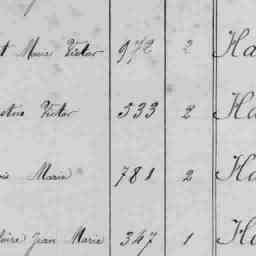 t Marie Victor 972 2 Ha
Victor 333 2 Ha
Marie 781 2 Ha
Jean Marie 347 1 Ha